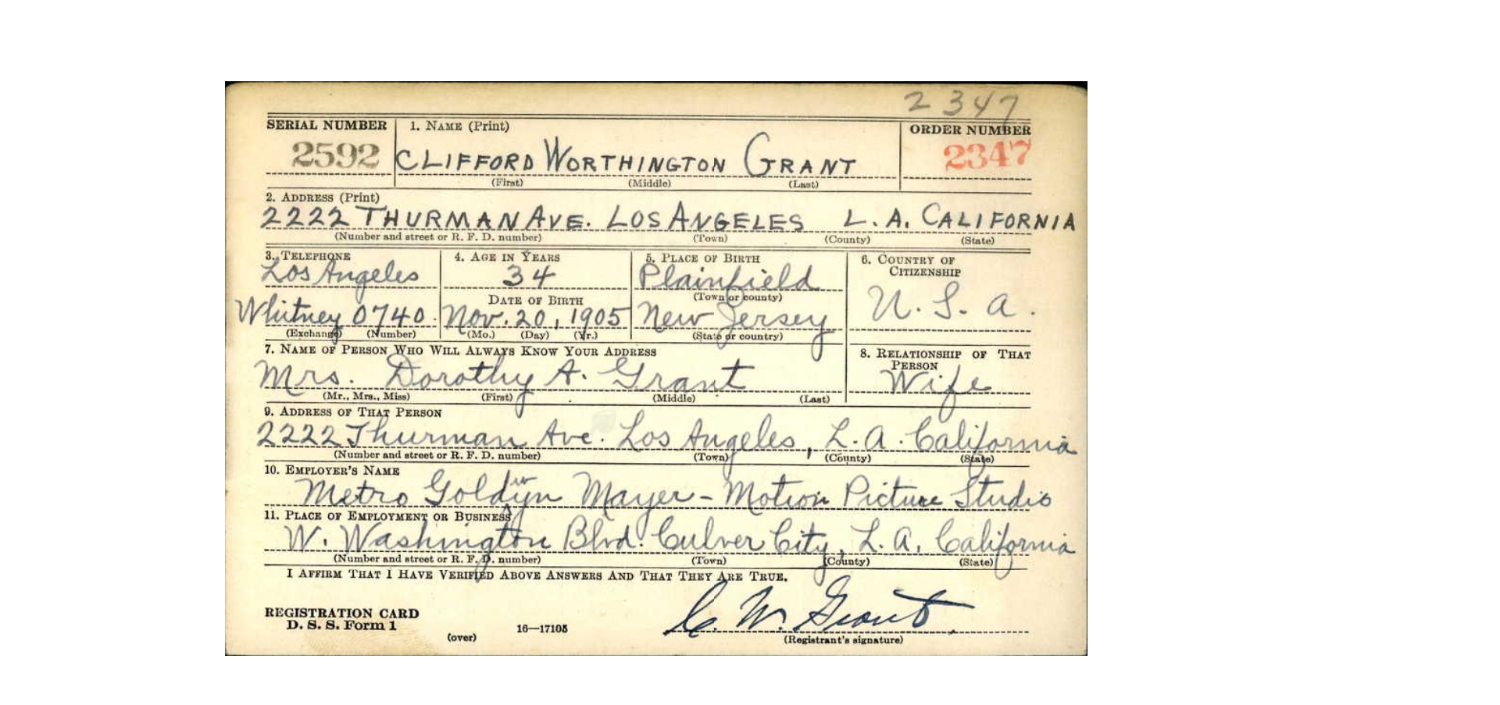 2347
SERIAL NUMBER 1. NAME (Print) ORDER NUMBER
2592 CLIFFORD WORTHINGTON GRANT 2347
(First) (Middle) (Last)
2. ADDRESS (Print)
2222 THURMAN AVE. LOS ANGELES L.A. CALIFORNIA
(Number and street or R. F. D. number) (Town) (County) (State)
3. TELEPHONE
Los Angeles
Whitney 0740
(Exchange) (Number)
4. AGE IN YEARS
34
DATE OF BIRTH
Nov. 20, 1905
(Mo.) (Day) (Yr.)
5. PLACE OF BIRTH
Plainfield
(Town or county)
New Jersey
(State or country)
6. COUNTRY OF
CITIZENSHIP
U. S. a.
7. NAME OF PERSON WHO WILL ALWAYS KNOW YOUR ADDRESS
Mrs. Dorothy A. Grant
(Mr., Mrs., Miss) (First) (Middle) (Last)
8. RELATIONSHIP OF THAT
PERSON
Wife
9. ADDRESS OF THAT PERSON
2222 Thurman Ave. Los Angeles, L.A. California
(Number and street or R. F. D. number) (Town) (County) (State)
10. EMPLOYER'S NAME
Metro Goldwyn Mayer - Motion Picture Studio
11. PLACE OF EMPLOYMENT OR BUSINESS
W. Washington Blvd. Culver City, L.A. California
(Number and street or R. F. D. number) (Town) (County) (State)
I AFFIRM THAT I HAVE VERIFIED ABOVE ANSWERS AND THAT THEY ARE TRUE.
REGISTRATION CARD
D. S. S. Form 1
(over) 16—17105
C. W. Grant.
(Registrant's signature)